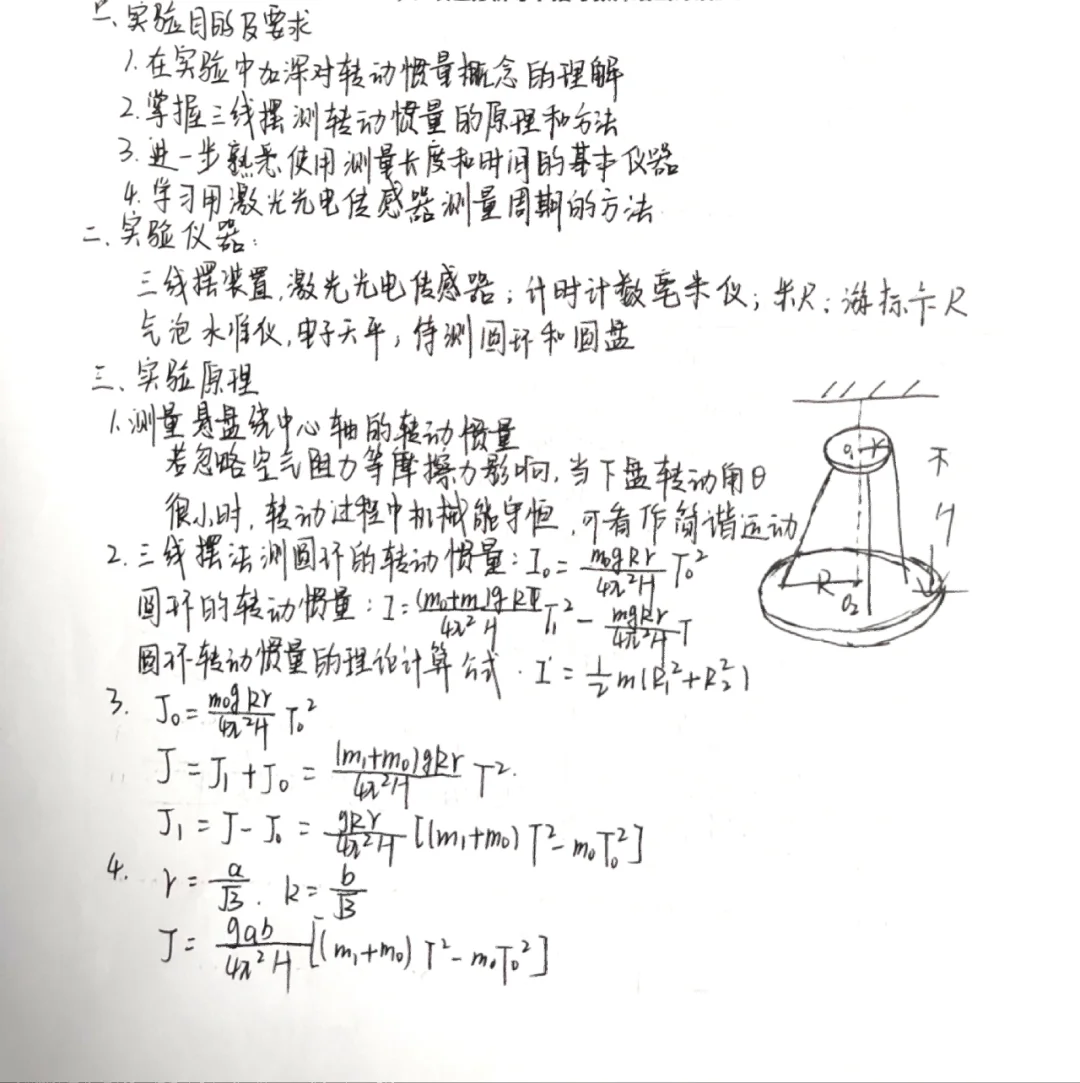 一、实验目的及要求
1.在实验中加深对转动惯量概念的理解
2.掌握三线摆测转动惯量的原理和方法
3.进一步熟悉使用测量长度和时间的基本仪器
4.学习用激光光电传感器测量周期的方法
二、实验仪器:
三线摆装置,激光光电传感器;计时计数毫米仪;米尺;游标卡尺
气泡水准仪,电子天平,待测圆环和圆盘
三、实验原理
1.测量悬盘绕中心轴的转动惯量
若忽略空气阻力等摩擦力影响,当下盘转动角θ
很小时,转动过程中机械能守恒,可看作简谐运动
2.三线摆法测圆环的转动惯量:I₀=m₀gRr/4π²H T₀²
圆环的转动惯量:I=(m₀+m)gRr/4π²H T₁²-mgRr/4π²H T
圆环转动惯量的理论计算公式.I'=1/2 m(R₁²+R₂²)
O₁ r
H
R
O₂
3. J₀=m₀gRr/4π²H T₀²
J=J₁+J₀=(m₁+m₀)gRr/4π²H T².
J₁=J-J₀=gRr/4π²H [(m₁+m₀)T²-m₀T₀²]
4. r=a/√3. R=b/√3
J=gab/4π²H [(m₁+m₀)T²-m₀T₀²]